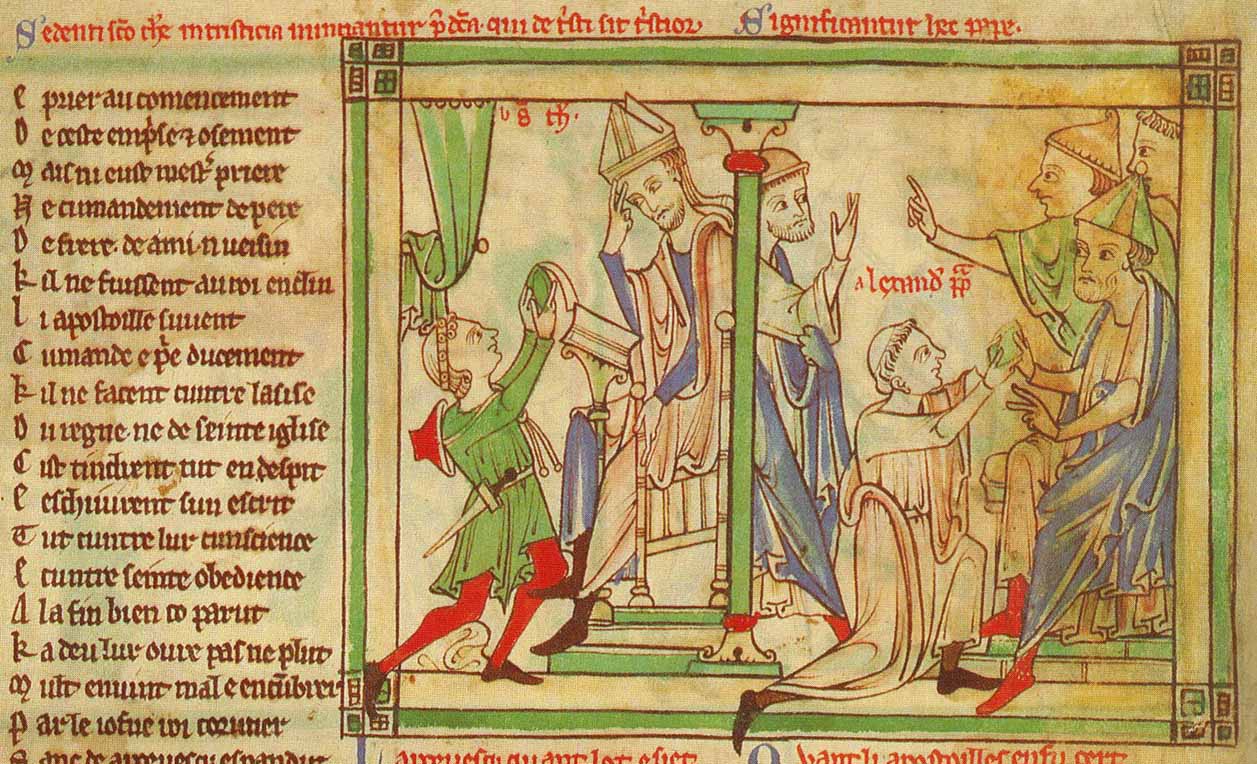 Sedenti sco the in tristicia nunciantur p̄dc̄a. qui de tsti sit tstior
Significantur hec pape.
E prier au comencement
D e ceste emprise 7 osement
M ais ni eust vuest' priere
N e cumandement de pere
D e frere. de ami. n veisin
K il ne fuissent au roi enclin
L i apostoille suvent
C umande e p̄e ducement
K il ne facent cuntre lasise
D u regne. ne de seinte iglise
C ist tindrent tut en despit
E eschiuirent sun escrit
T ut cuntre lur cunscience
E cuntre seinte obedience
A la fin bien co parut
K a deu lur ovre pas ne plut
M ult en vint mal e encūbrer
P ar le iofne roi coruner
b s th'.
Alexand' pp̄
arcevesqu quant lot e siet
Quant li apostoilles en fu cert